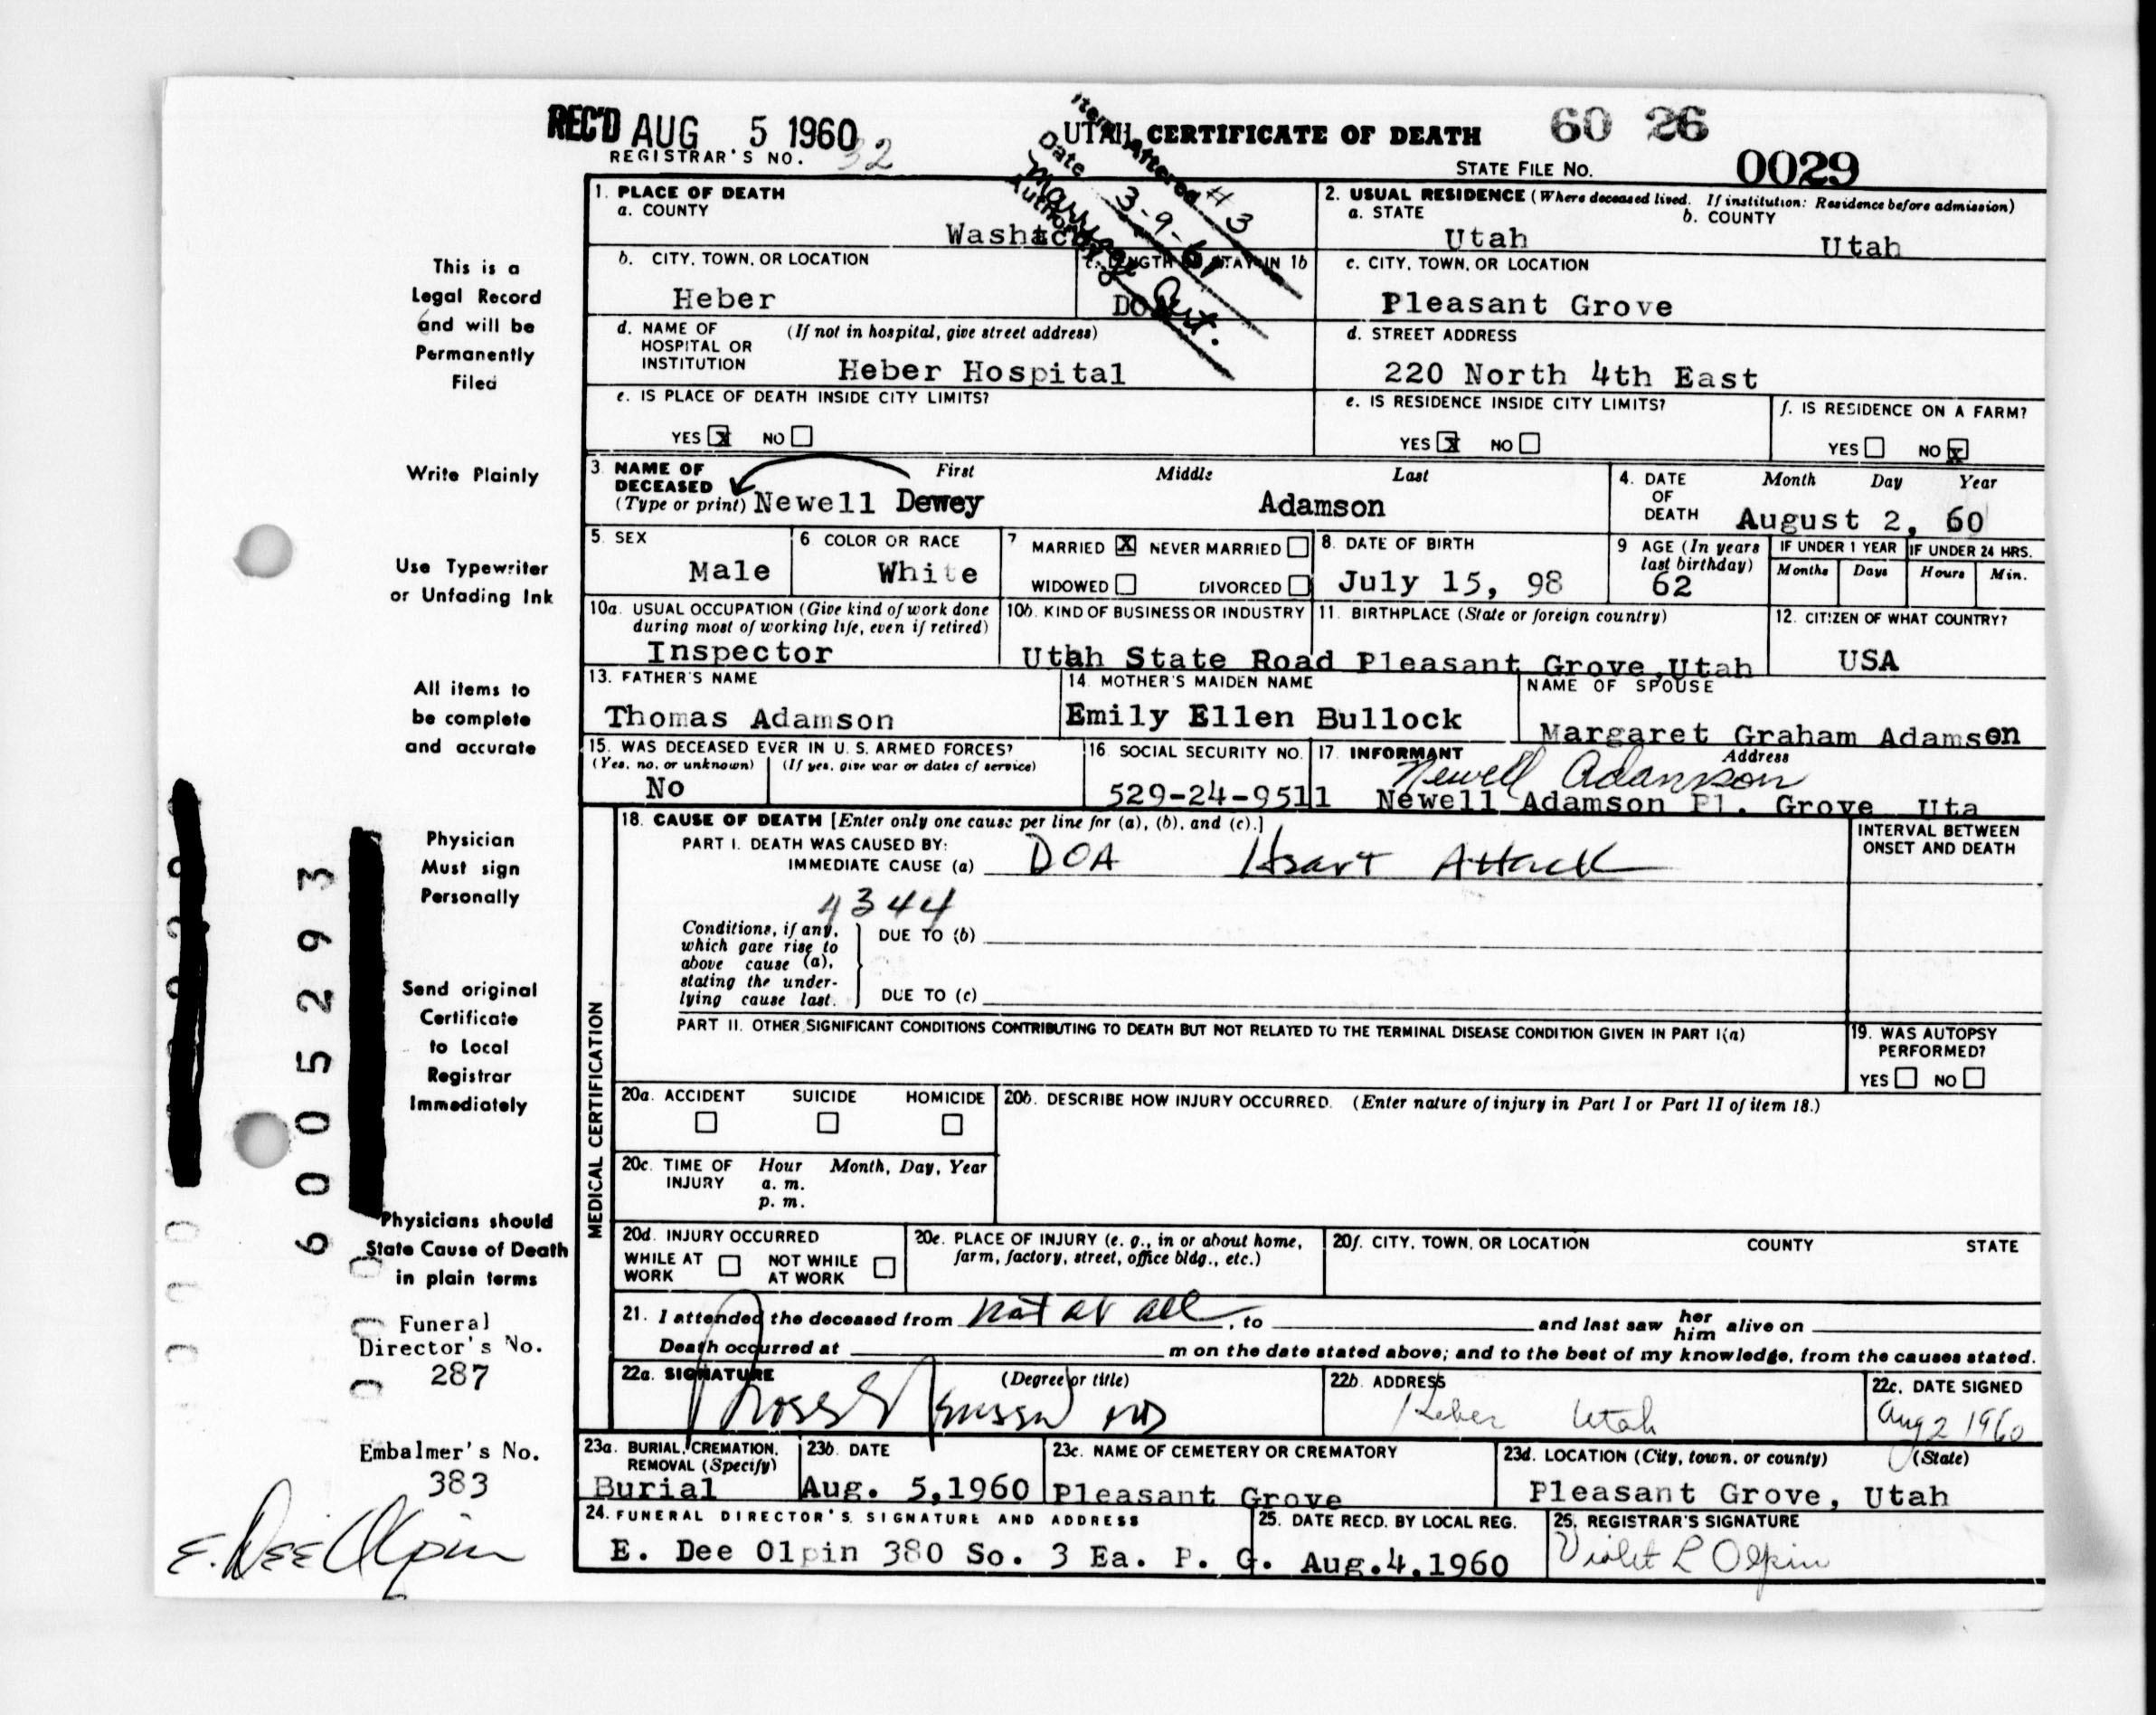 REC'D AUG 5 1960
REGISTRAR'S NO. 32
UTAH CERTIFICATE OF DEATH
60 26
STATE FILE NO. 0029
Item Altered #3
Date 3-9-61
Authority Marriage Cert.
1. PLACE OF DEATH
a. COUNTY
Washatch
2. USUAL RESIDENCE (Where deceased lived. If institution: Residence before admission)
a. STATE b. COUNTY
Utah Utah
b. CITY, TOWN, OR LOCATION
Heber
c. LENGTH OF STAY IN 1b
DOA
c. CITY, TOWN, OR LOCATION
Pleasant Grove
d. NAME OF (If not in hospital, give street address)
HOSPITAL OR
INSTITUTION Heber Hospital
d. STREET ADDRESS
220 North 4th East
e. IS PLACE OF DEATH INSIDE CITY LIMITS?
YES X NO
e. IS RESIDENCE INSIDE CITY LIMITS?
YES X NO
f. IS RESIDENCE ON A FARM?
YES NO X
3. NAME OF First Middle Last
DECEASED
(Type or print) Newell Dewey Adamson
4. DATE Month Day Year
OF
DEATH August 2, 60
5. SEX
Male
6 COLOR OR RACE
White
7 MARRIED X NEVER MARRIED
WIDOWED DIVORCED
8. DATE OF BIRTH
July 15, 98
9 AGE (In years
last birthday)
62
IF UNDER 1 YEAR IF UNDER 24 HRS.
Months Days Hours Min.
10a. USUAL OCCUPATION (Give kind of work done
during most of working life, even if retired)
Inspector
10b. KIND OF BUSINESS OR INDUSTRY
Utah State Road
11. BIRTHPLACE (State or foreign country)
Pleasant Grove, Utah
12. CITIZEN OF WHAT COUNTRY?
USA
13. FATHER'S NAME
Thomas Adamson
14. MOTHER'S MAIDEN NAME
Emily Ellen Bullock
NAME OF SPOUSE
Margaret Graham Adamson
15. WAS DECEASED EVER IN U. S. ARMED FORCES?
(Yes, no, or unknown) (If yes, give war or dates of service)
No
16. SOCIAL SECURITY NO.
529-24-9511
17. INFORMANT Address
Newell Adamson
Newell Adamson Pl. Grove Uta
18. CAUSE OF DEATH [Enter only one cause per line for (a), (b), and (c).]
PART I. DEATH WAS CAUSED BY:
IMMEDIATE CAUSE (a) DOA Heart Attack
INTERVAL BETWEEN
ONSET AND DEATH
4344
Conditions, if any,
which gave rise to
above cause (a),
stating the under-
lying cause last.
DUE TO (b)
DUE TO (c)
PART II. OTHER SIGNIFICANT CONDITIONS CONTRIBUTING TO DEATH BUT NOT RELATED TO THE TERMINAL DISEASE CONDITION GIVEN IN PART I(a)
19. WAS AUTOPSY
PERFORMED?
YES NO
20a. ACCIDENT SUICIDE HOMICIDE
20b. DESCRIBE HOW INJURY OCCURRED. (Enter nature of injury in Part I or Part II of item 18.)
20c. TIME OF Hour Month, Day, Year
INJURY a. m.
p. m.
20d. INJURY OCCURRED
WHILE AT NOT WHILE
WORK AT WORK
20e. PLACE OF INJURY (e. g., in or about home,
farm, factory, street, office bldg., etc.)
20f. CITY, TOWN, OR LOCATION COUNTY STATE
21. I attended the deceased from not at all, to and last saw her him alive on
Death occurred at m on the date stated above; and to the best of my knowledge, from the causes stated.
22a. SIGNATURE (Degree or title)
MD
22b. ADDRESS
Heber Utah
22c. DATE SIGNED
Aug 2 1960
23a. BURIAL, CREMATION,
REMOVAL (Specify)
Burial
23b. DATE
Aug. 5,1960
23c. NAME OF CEMETERY OR CREMATORY
Pleasant Grove
23d. LOCATION (City, town, or county) (State)
Pleasant Grove, Utah
24. FUNERAL DIRECTOR'S SIGNATURE AND ADDRESS
E. Dee Olpin 380 So. 3 Ea. P. G.
25. DATE RECD. BY LOCAL REG.
Aug.4,1960
26. REGISTRAR'S SIGNATURE
Violet L Olpin
MEDICAL CERTIFICATION
This is a
Legal Record
and will be
Permanently
Filed
Write Plainly
Use Typewriter
or Unfading Ink
All items to
be complete
and accurate
Physician
Must sign
Personally
Send original
Certificate
to Local
Registrar
Immediately
Physicians should
State Cause of Death
in plain terms
Funeral
Director's No.
287
Embalmer's No.
383
E. Dee Olpin
6005293